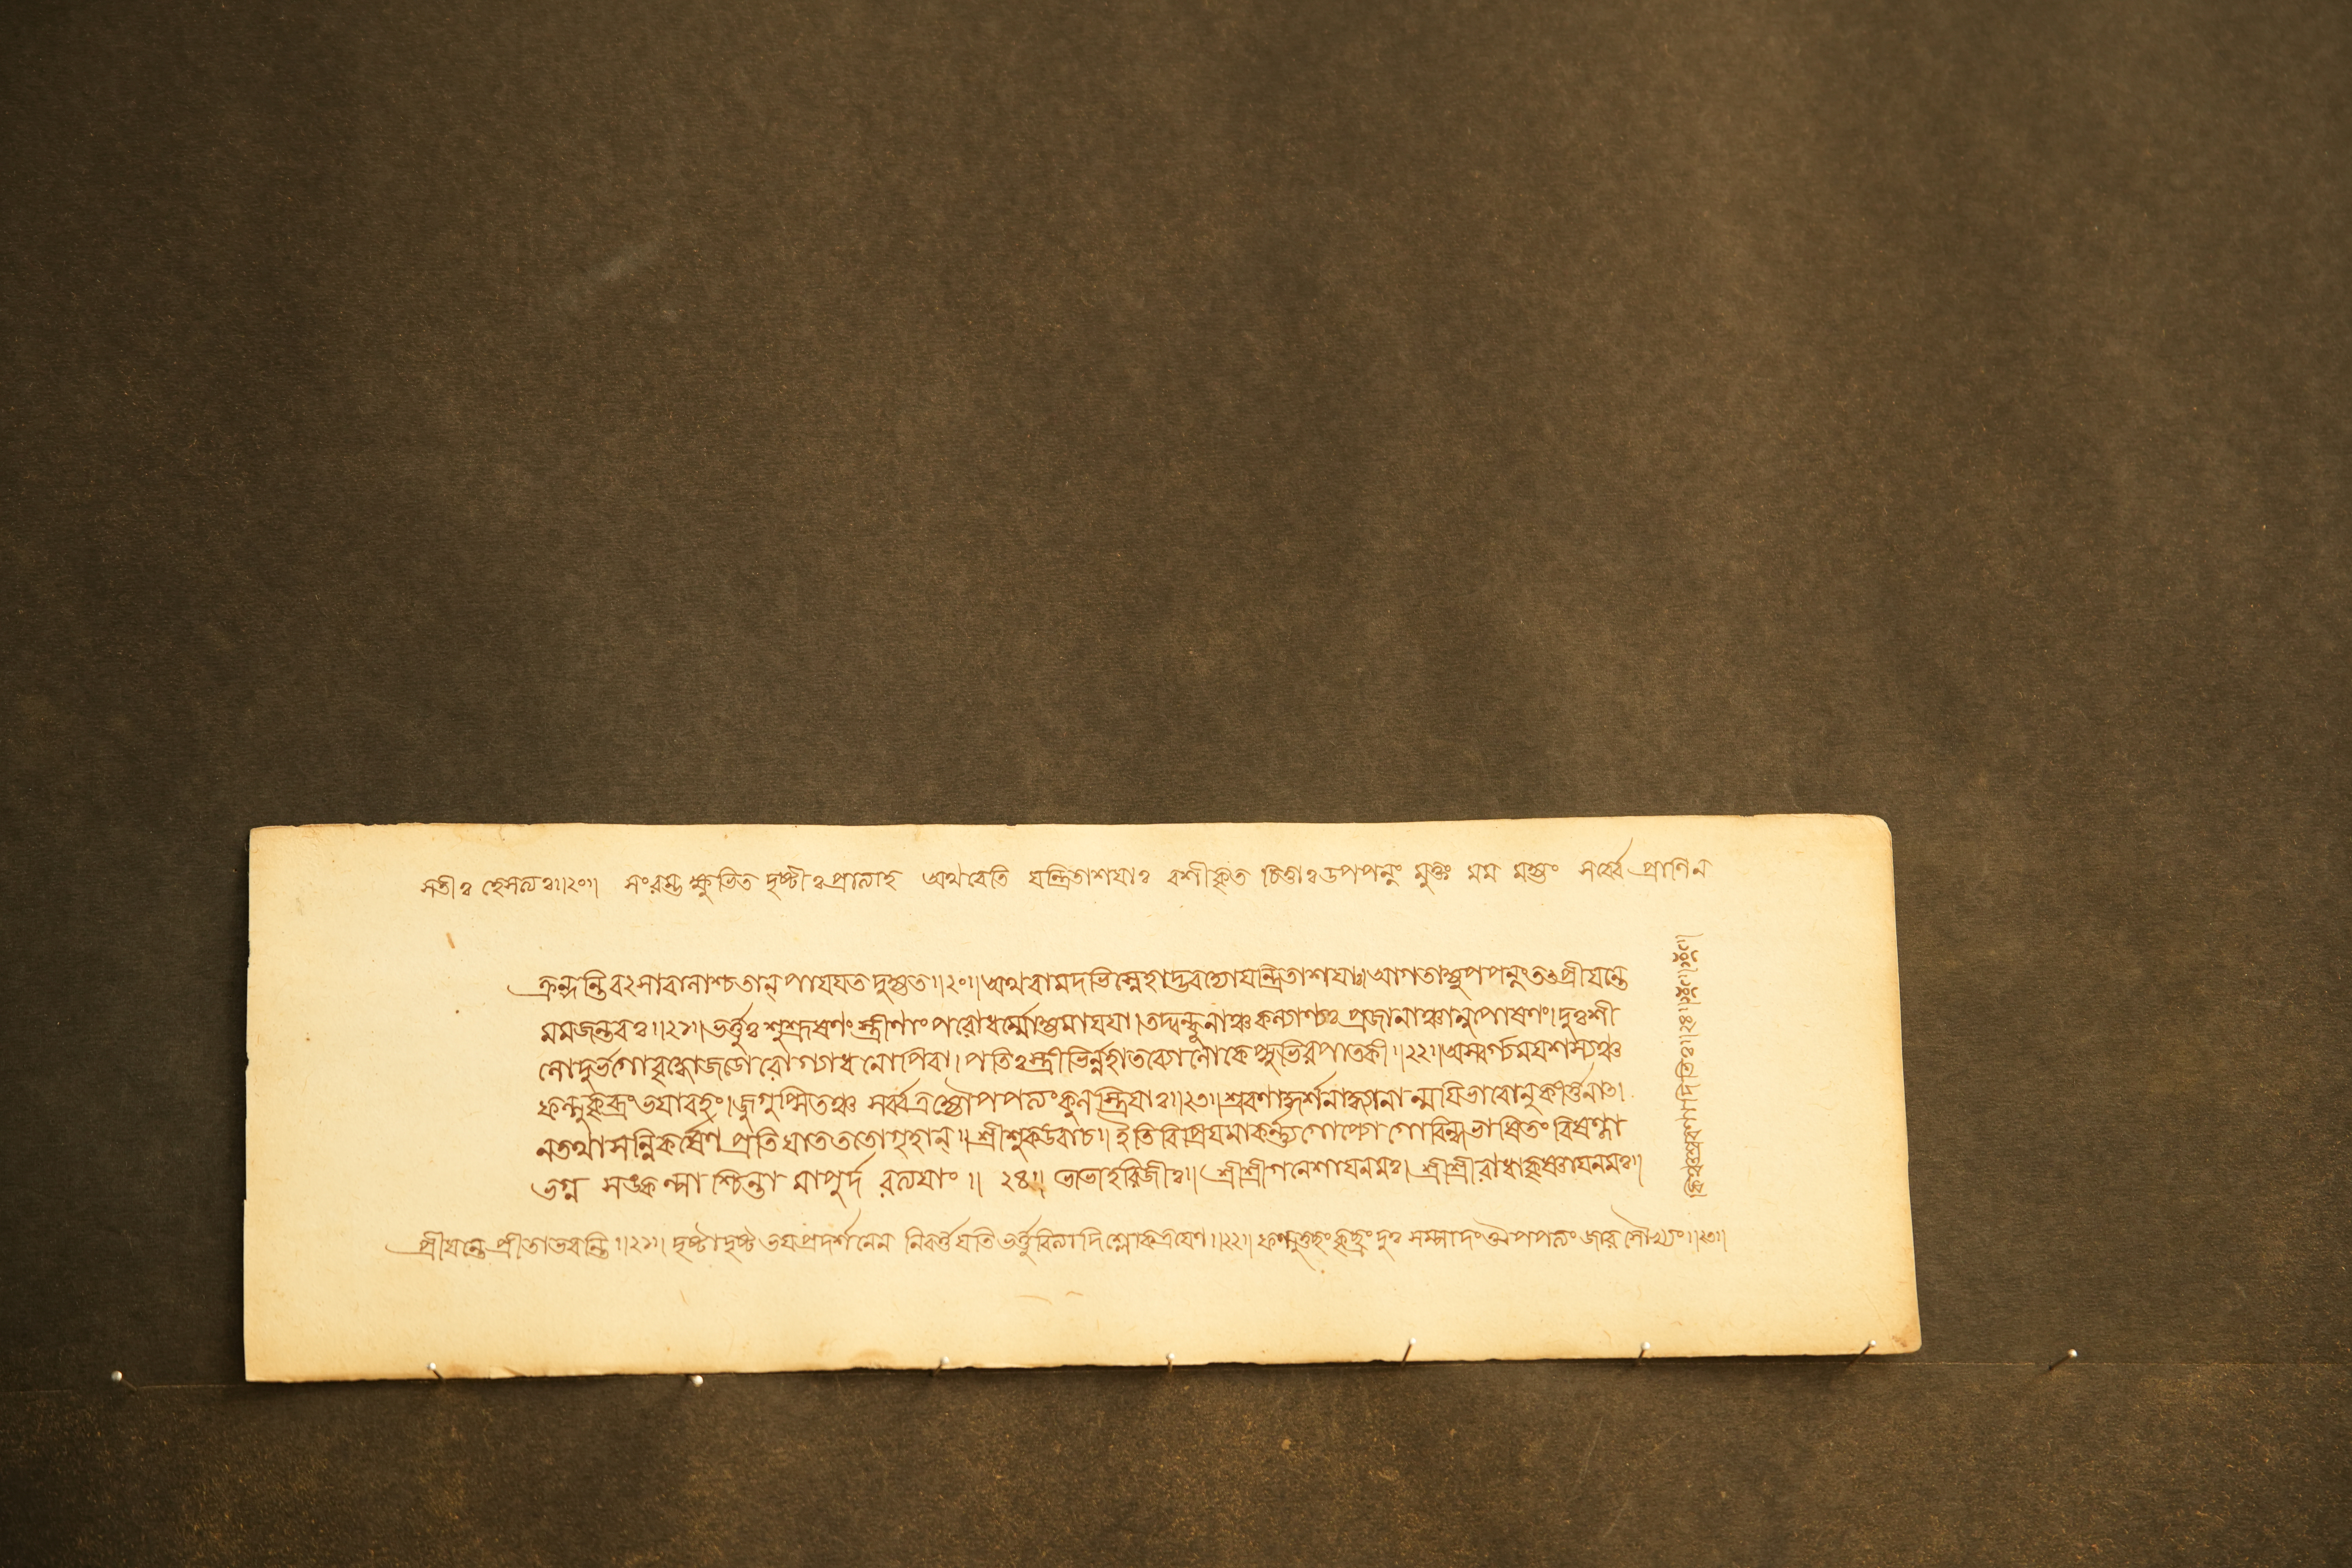 সতীঃ হেসত্যঃ॥২০॥ সংরম্ভ ক্ষুভিত দৃষ্টীঃ প্রত্যাহ অথবেতি যন্ত্রিতাশয়াঃ বশীকৃত চিত্তাঃ উপপন্নং যুক্তং মম মহ্যং সর্ব্বে প্রাণিন
ক্রন্দন্তি বৎসাবালাশ্চ তান্ পায়য়ত দুহ্যত॥২০॥ অথবামদভিস্নেহাদ্ভবত্যোযন্ত্রিতাশয়াঃ। আগতাহ্যুপপন্নং তৎ প্রীয়ন্তে
মমজন্তবঃ॥২১॥ ভর্ত্তুঃ শুশ্রূষণং স্ত্রীণাং পরোধর্ম্মোহ্যমায়য়া। তদ্বন্ধূনাঞ্চ কল্যাণ্যঃ প্রজানাঞ্চানুপোষণং। দুঃশী
লোদুর্ভগোবৃদ্ধোজড়োরোগ্যধনোপিবা। পতিঃ স্ত্রীভির্ন্নহাতব্যোলোকেপ্সুভিরপাতকী॥২২॥ অস্বর্গ্যময়শস্যঞ্চ
ফল্গুকৃচ্ছ্রং ভয়াবহং। জুগুপ্সিতঞ্চ সর্ব্বত্রহ্যৌপপত্যং কুলস্ত্রিয়াঃ॥২৩॥ শ্রবণাদ্দর্শনাদ্ধ্যানান্ময়িভাবোনুকীর্ত্তনাৎ।
নতথাসন্নিকর্ষেণ প্রতিযাত ততোগৃহান্॥ শ্রীশুকউবাচ॥ ইতিবিপ্রিয়মাকর্ণ্যগোপ্যোগোবিন্দভাষিতং বিষণ্ণা
ভগ্ন সঙ্কল্পা শ্চিন্তা মাপুর্দ রত্যয়াং॥ ২৪॥ শ্রীশ্রীগনেশায়নমঃ। শ্রীশ্রীরাধাকৃষ্ণায়নমঃ॥
প্রীয়ন্তে প্রীতাভবন্তি॥২১॥ দৃষ্টাদৃষ্ট ভয়প্রদর্শনেন নিবর্ত্তয়তি ভর্ত্তুরিত্যাদিশ্লোকত্রয়েণ॥২২॥ ফল্গুতুচ্ছং কৃচ্ছ্রং দুঃ সম্পাদং ঔপপত্যং জার সৌখ্যং॥২৩॥